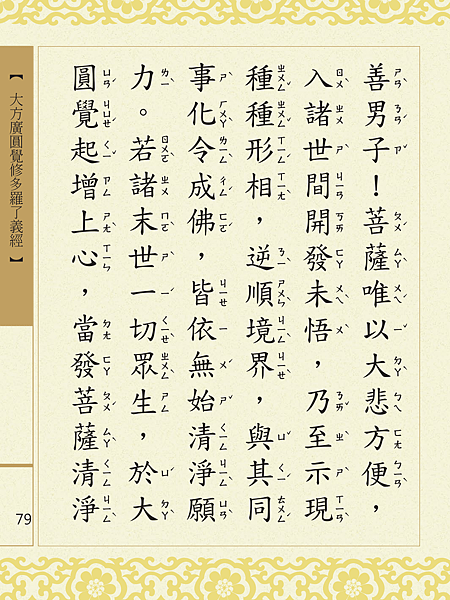 善男子！菩薩唯以大悲方便，
入諸世間開發未悟，乃至示現
種種形相，逆順境界，與其同
事化令成佛，皆依無始清淨願
力。若諸末世一切眾生，於大
圓覺起增上心，當發菩薩清淨
【大方廣圓覺修多羅了義經】
79